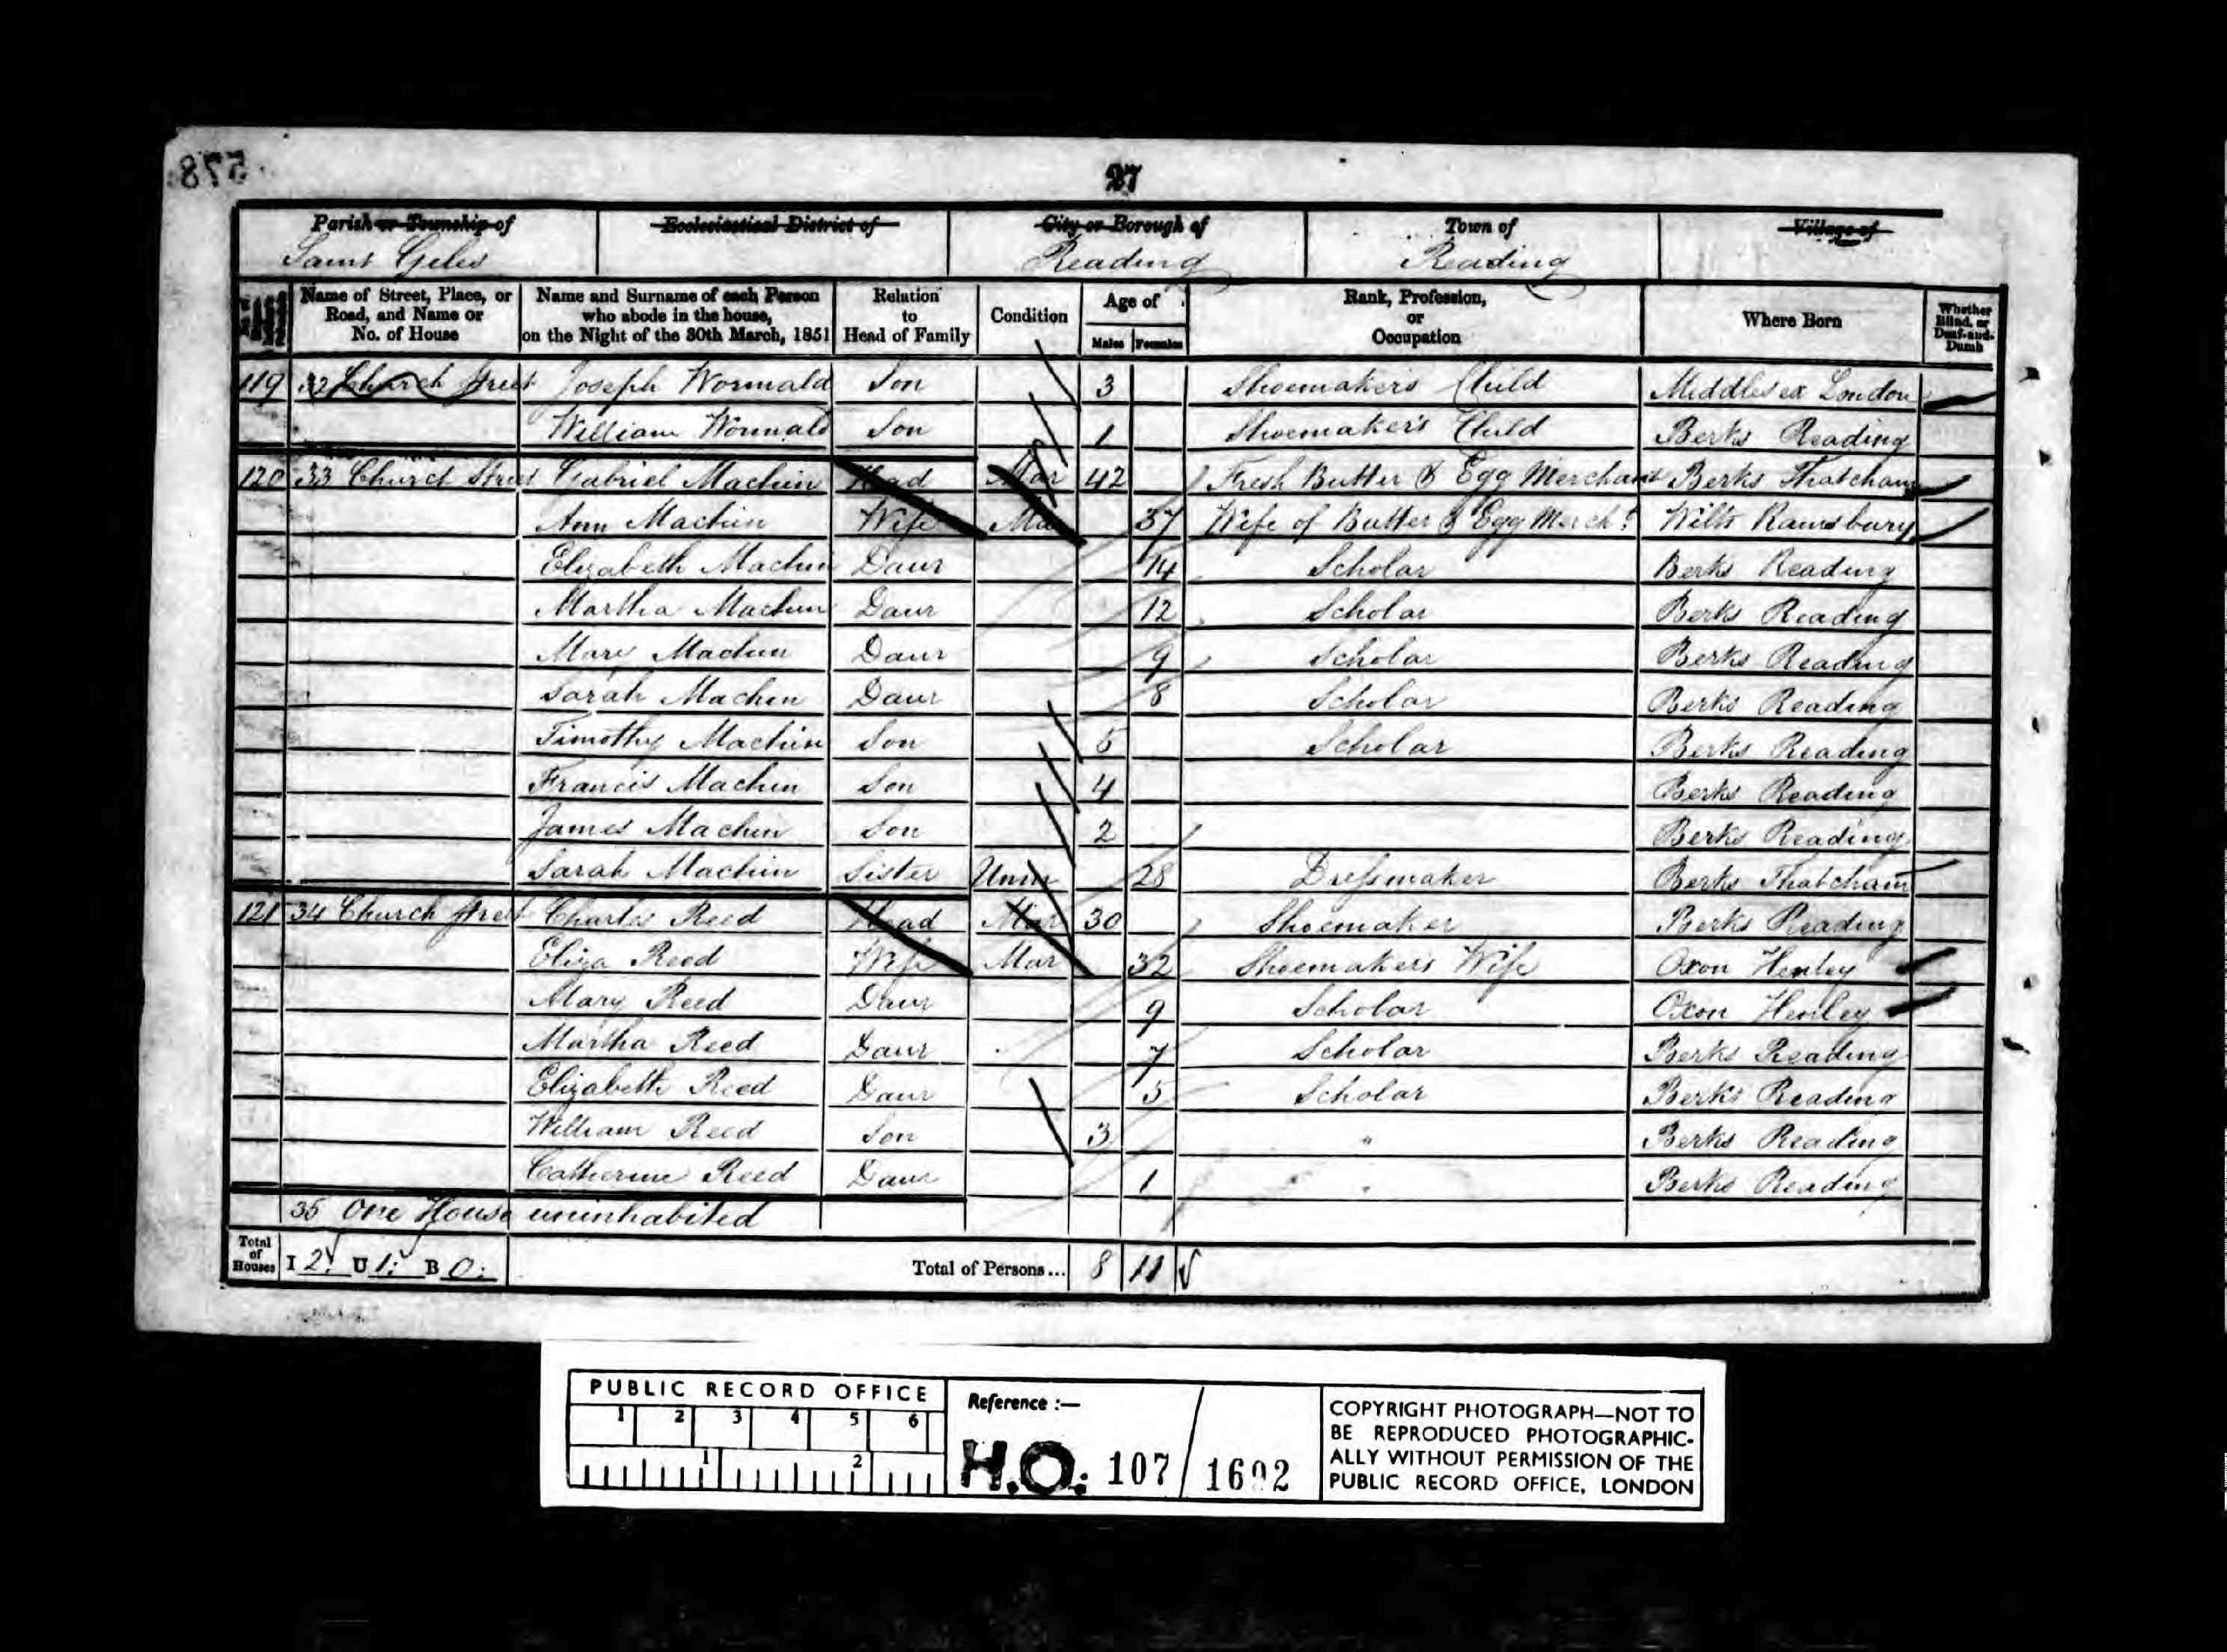 578
27
Parish or Township of Ecclesiastical District of City or Borough of Town of Village of
Saint Giles Reading Reading
Name of Street, Place, or Road, and Name or No. of House
Name and Surname of each Person who abode in the house, on the Night of the 30th March, 1851
Relation to Head of Family
Condition
Age of
Males Females
Rank, Profession, or Occupation
Where Born
Whether Blind, or Deaf-and-Dumb
119 32 Church Street Joseph Wormald Son 3 Shoemaker's Child Middlesex London
William Wormald Son 1 Shoemaker's Child Berks Reading
120 33 Church Street Gabriel Machin Head Mar 42 Fresh Butter & Egg Merchant Berks Thatcham
Ann Machin Wife Mar 37 Wife of Butter & Egg Merch.t Wilts Ramsbury
Elizabeth Machin Daur 14 Scholar Berks Reading
Martha Machin Daur 12 Scholar Berks Reading
Mary Machin Daur 9 Scholar Berks Reading
Sarah Machin Daur 8 Scholar Berks Reading
Timothy Machin Son 5 Scholar Berks Reading
Francis Machin Son 4 Berks Reading
James Machin Son 2 Berks Reading
Sarah Machin Sister Unm 28 Dressmaker Berks Thatcham
121 34 Church Street Charles Reed Head Mar 30 Shoemaker Berks Reading
Eliza Reed Wife Mar 32 Shoemaker's Wife Oxon Henley
Mary Reed Daur 9 Scholar Oxon Henley
Martha Reed Daur 7 Scholar Berks Reading
Elizabeth Reed Daur 5 Scholar Berks Reading
William Reed Son 3 " Berks Reading
Catherine Reed Daur 1 " Berks Reading
35 One House uninhabited
Total of Houses I 2 U 1 B 0 Total of Persons... 8 11
PUBLIC RECORD OFFICE
1 2 3 4 5 6
1 2
Reference :—
H.O. 107 / 1692
COPYRIGHT PHOTOGRAPH—NOT TO
BE REPRODUCED PHOTOGRAPHIC-
ALLY WITHOUT PERMISSION OF THE
PUBLIC RECORD OFFICE, LONDON